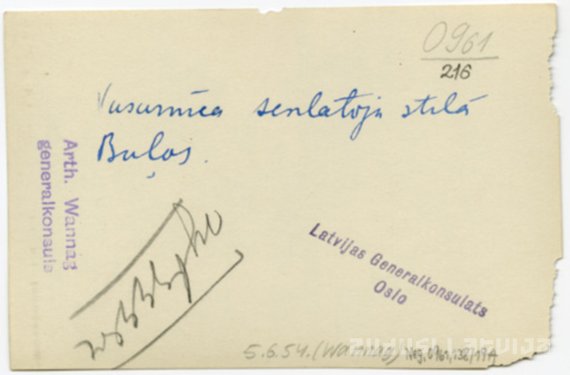 0961
216
Vasarnīca senlatvju stilā
Buļos.
Arth. Wannag
generalkonsuls
Latvijas Generalkonsulats
Oslo
5.6.54. (Wannag) Neg. 0961,
ZUDUSĪ LATVIJA